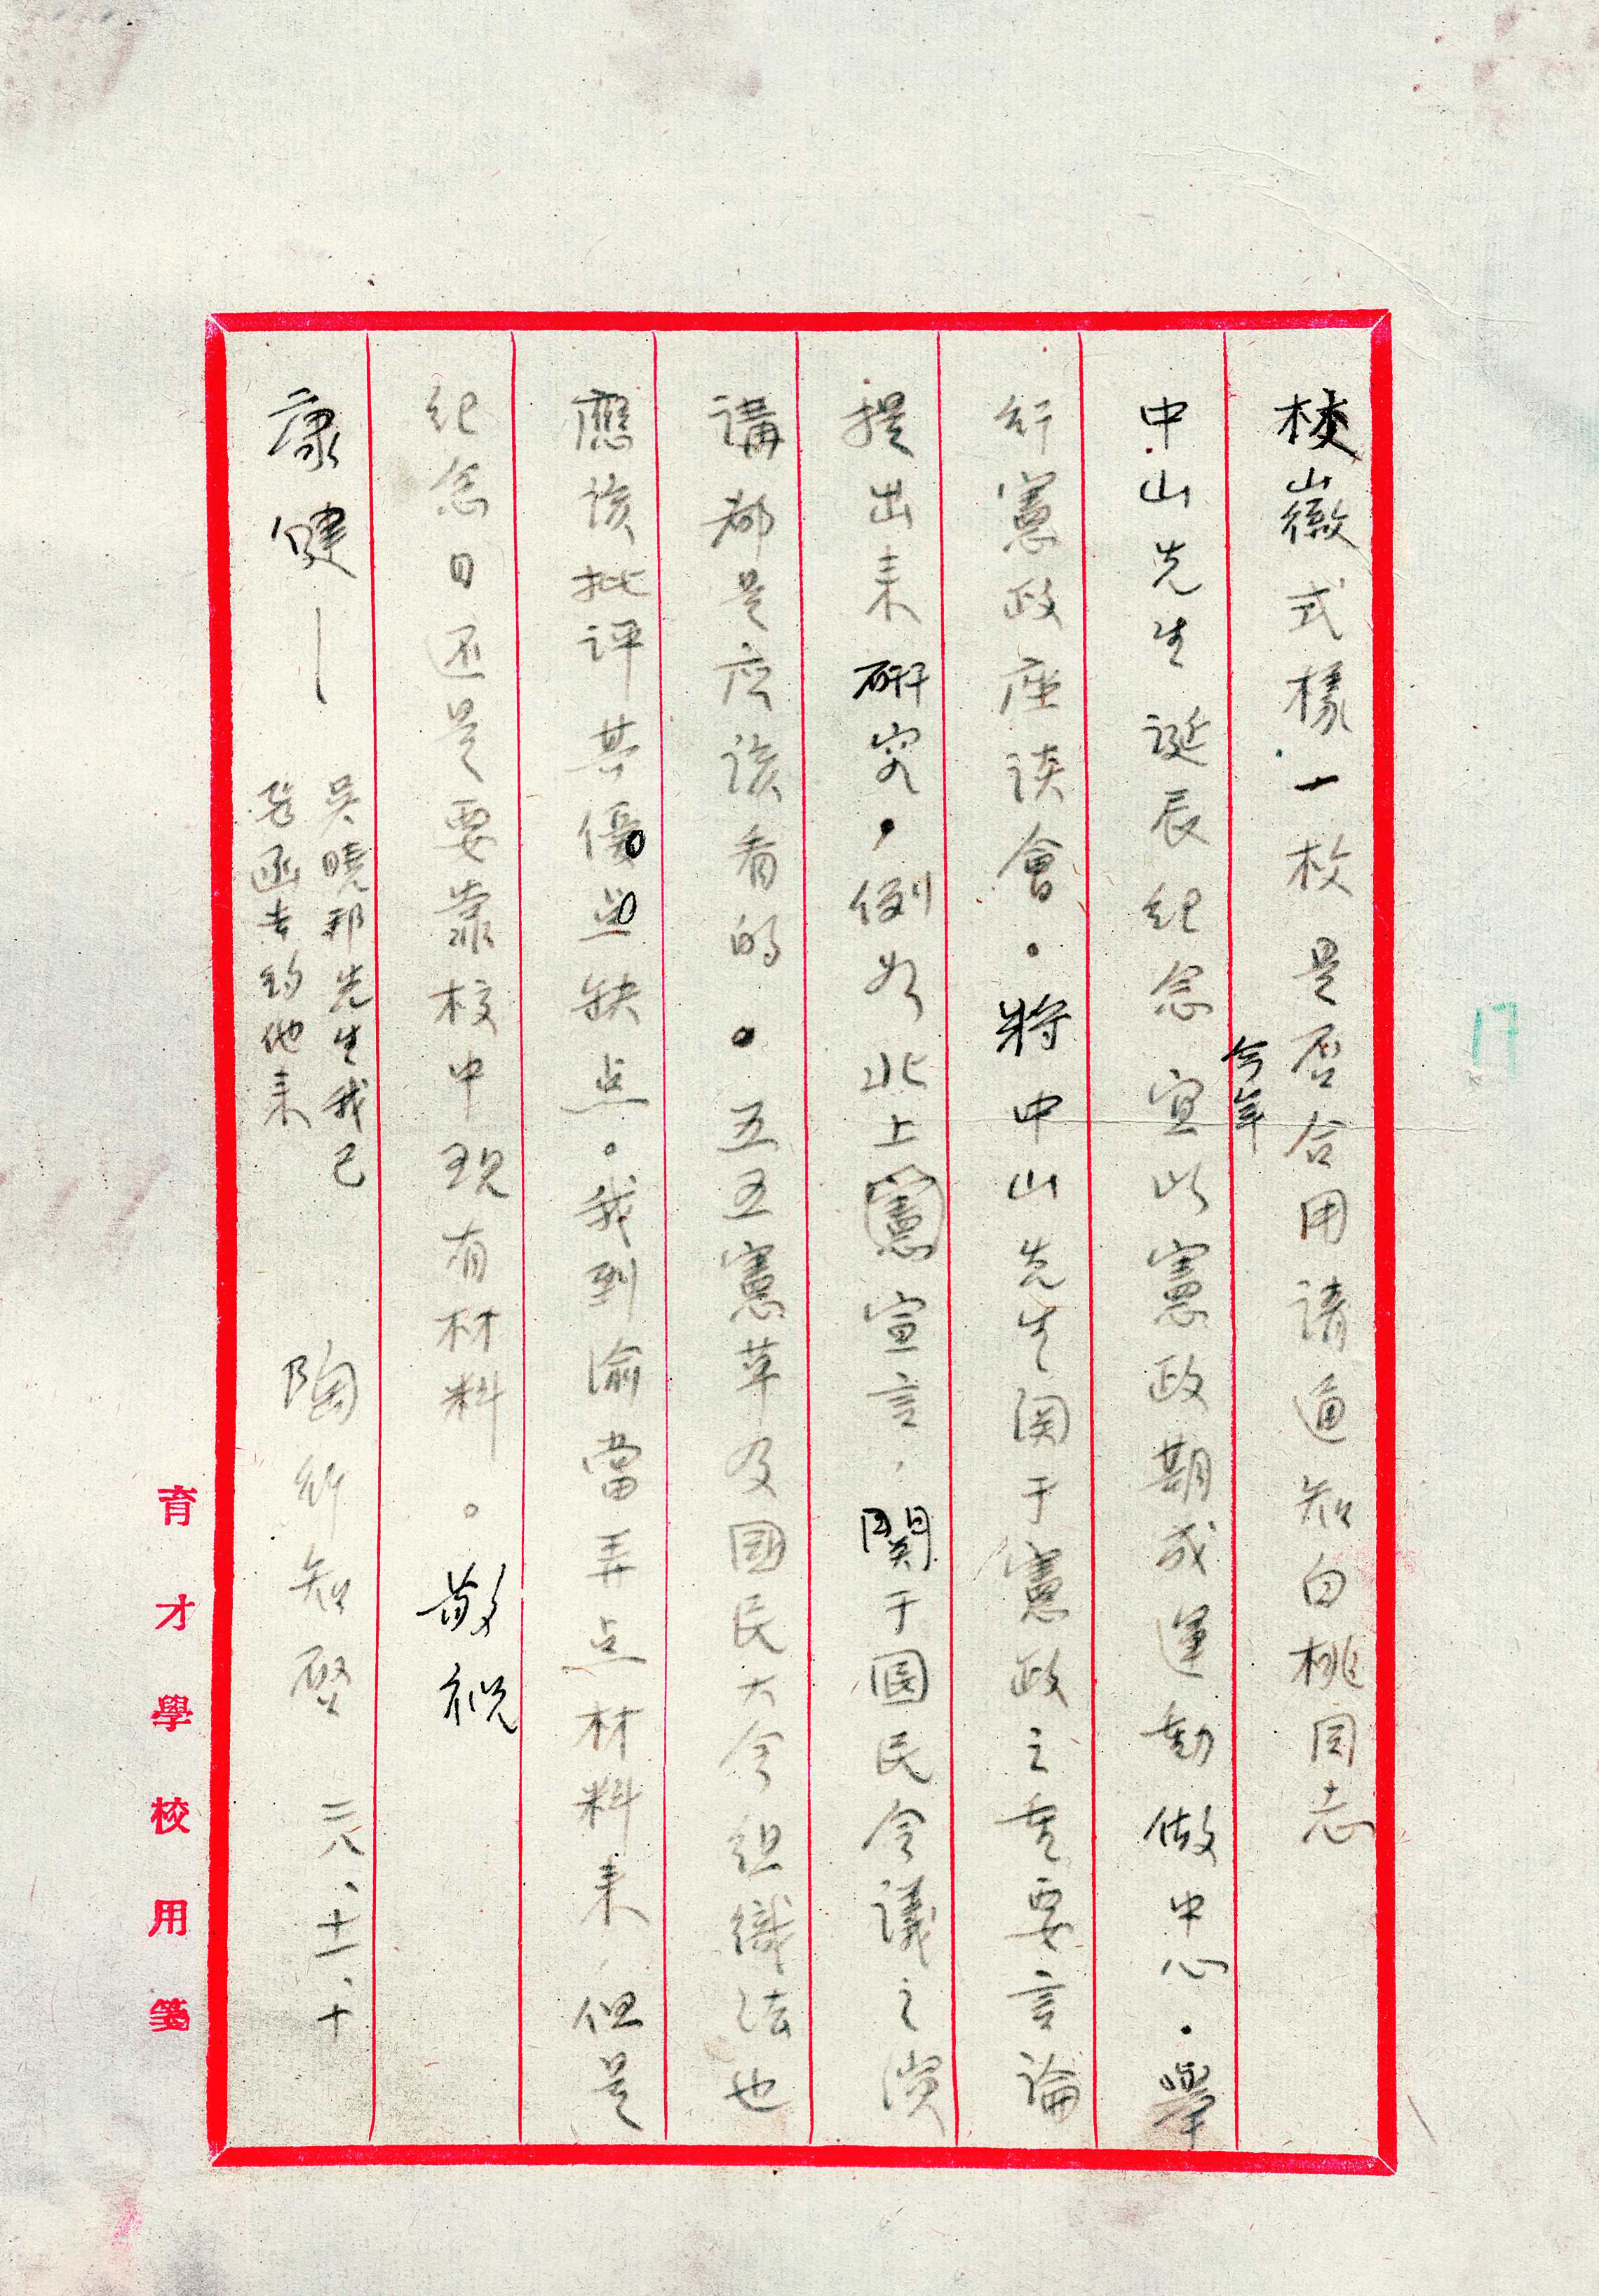 校徽式樣一枚是否合用請通知白桃同志
今年
中山先生誕辰紀念宜以憲政期成運動做中心.舉
行憲政座談會.將中山先生関于憲政之重要言論
提出来研究,例如北上宣言,関于国民会議之演
講都是应該看的.五五憲草及國民大会组織法也
應該批評其優点缺点。我到渝當弄点材料来,但是
紀念日还是要靠校中現有材料。敬祝
康健—
吴曉邦先生我已
函去約他来
陶行知啓
二八、十一、十
育才學校用箋
17